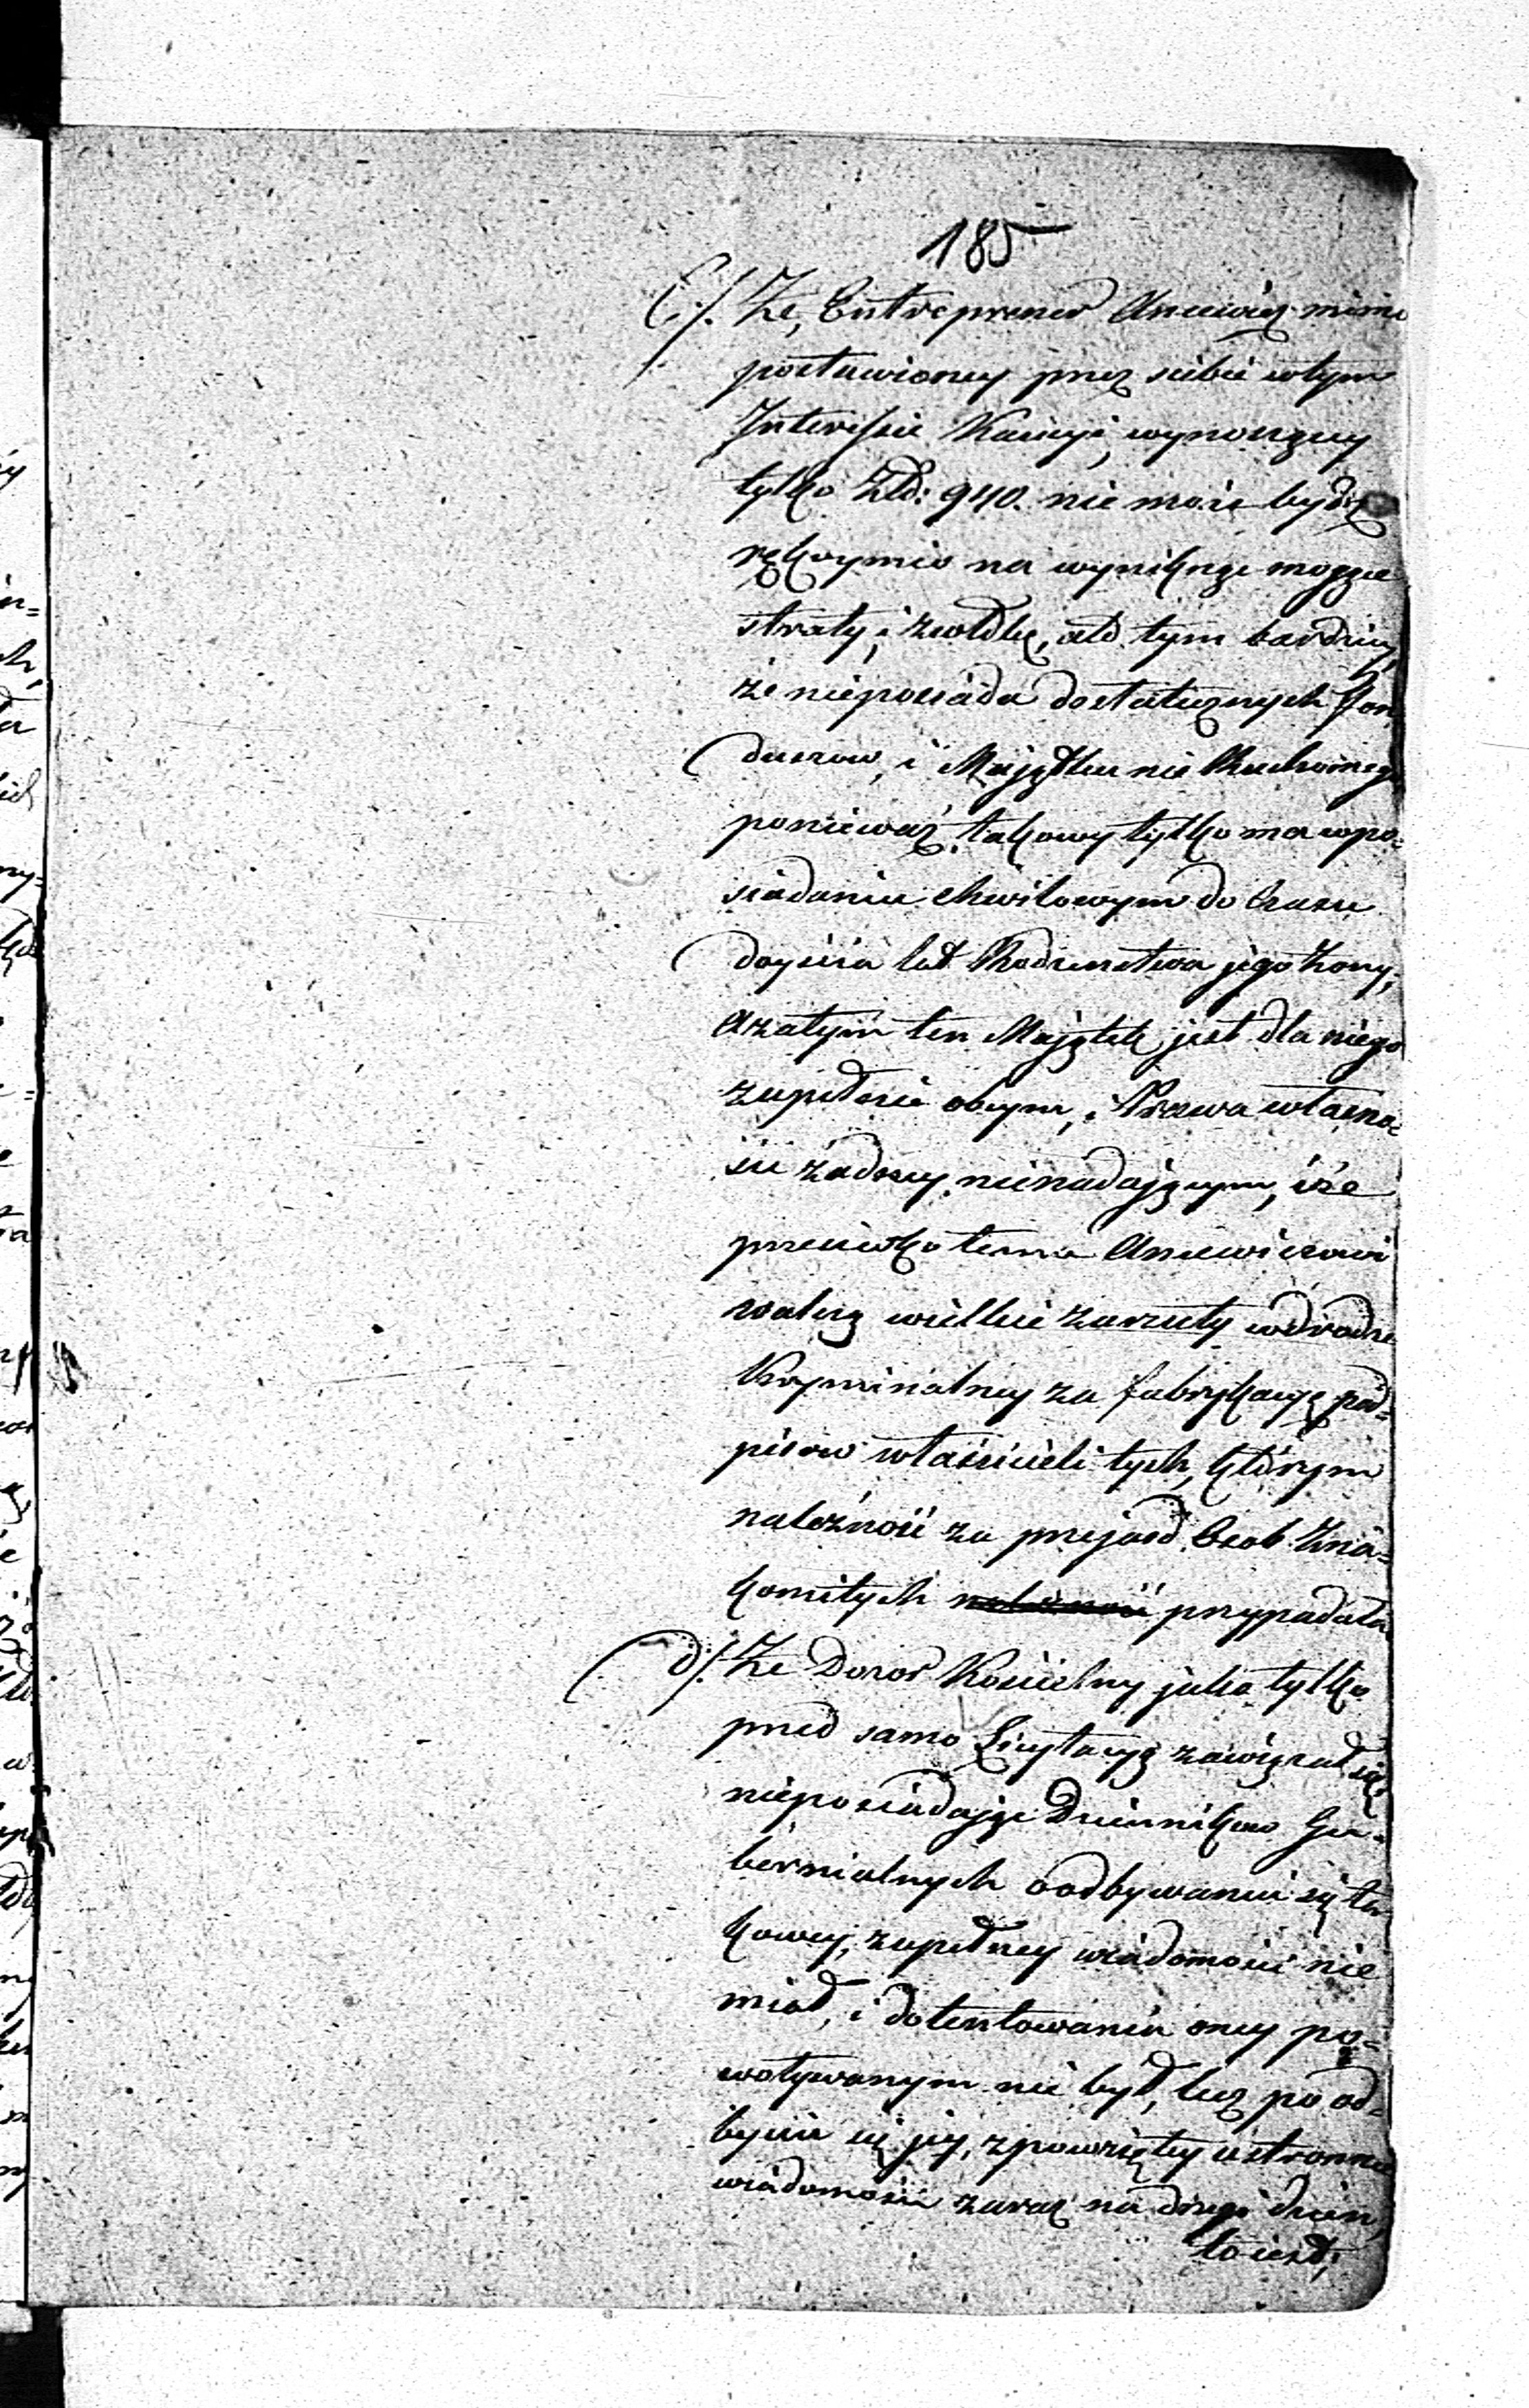 185
C/. Że, Entreprener Ancewicz mimo
postawioney przez siebie wtym
Interessie Kaucyi, wynoszącey
tylko Złł: 940. nie może bydź
rękoymio na wyniknąć mogące
straty, i zwłokę, ale tym bardziey,
że nieposiada dostatecznych fon
duszow, i Majątku nie Ruchomego
ponieważ takowy tylko ma wpo-
siadaniu chwilowym do Czasu
doyścia lat Rodzenstwa jego Żony,
Azatym ten Majątek jest dla niego
zupełnie obcym, i Prawa własno-
ści żadney nienadającym, iże
przeciwko temu Ancewiczowi
walczą wielkie zarzuty wdrodze
Kryminalney za fabrykacyą pod-
pisow właścicieli tych, którym
należność za przejazd Osob Zna-
komitych przypadała
d/. Że Dozor Kościelny jako tylko
przed samo Licytacyą zawiązał się,
nieposiadając Dziennikow Gu-
bernialnych oodbywaniu się ta-
kowey, zupełney wiadomości nie
miał, i dotentowania oney po-
woływanym nie był, lecz po od-
byciu się jey, zpowziętey ustronnie
wiadomości zaraz na drugi dzien,
to iest,